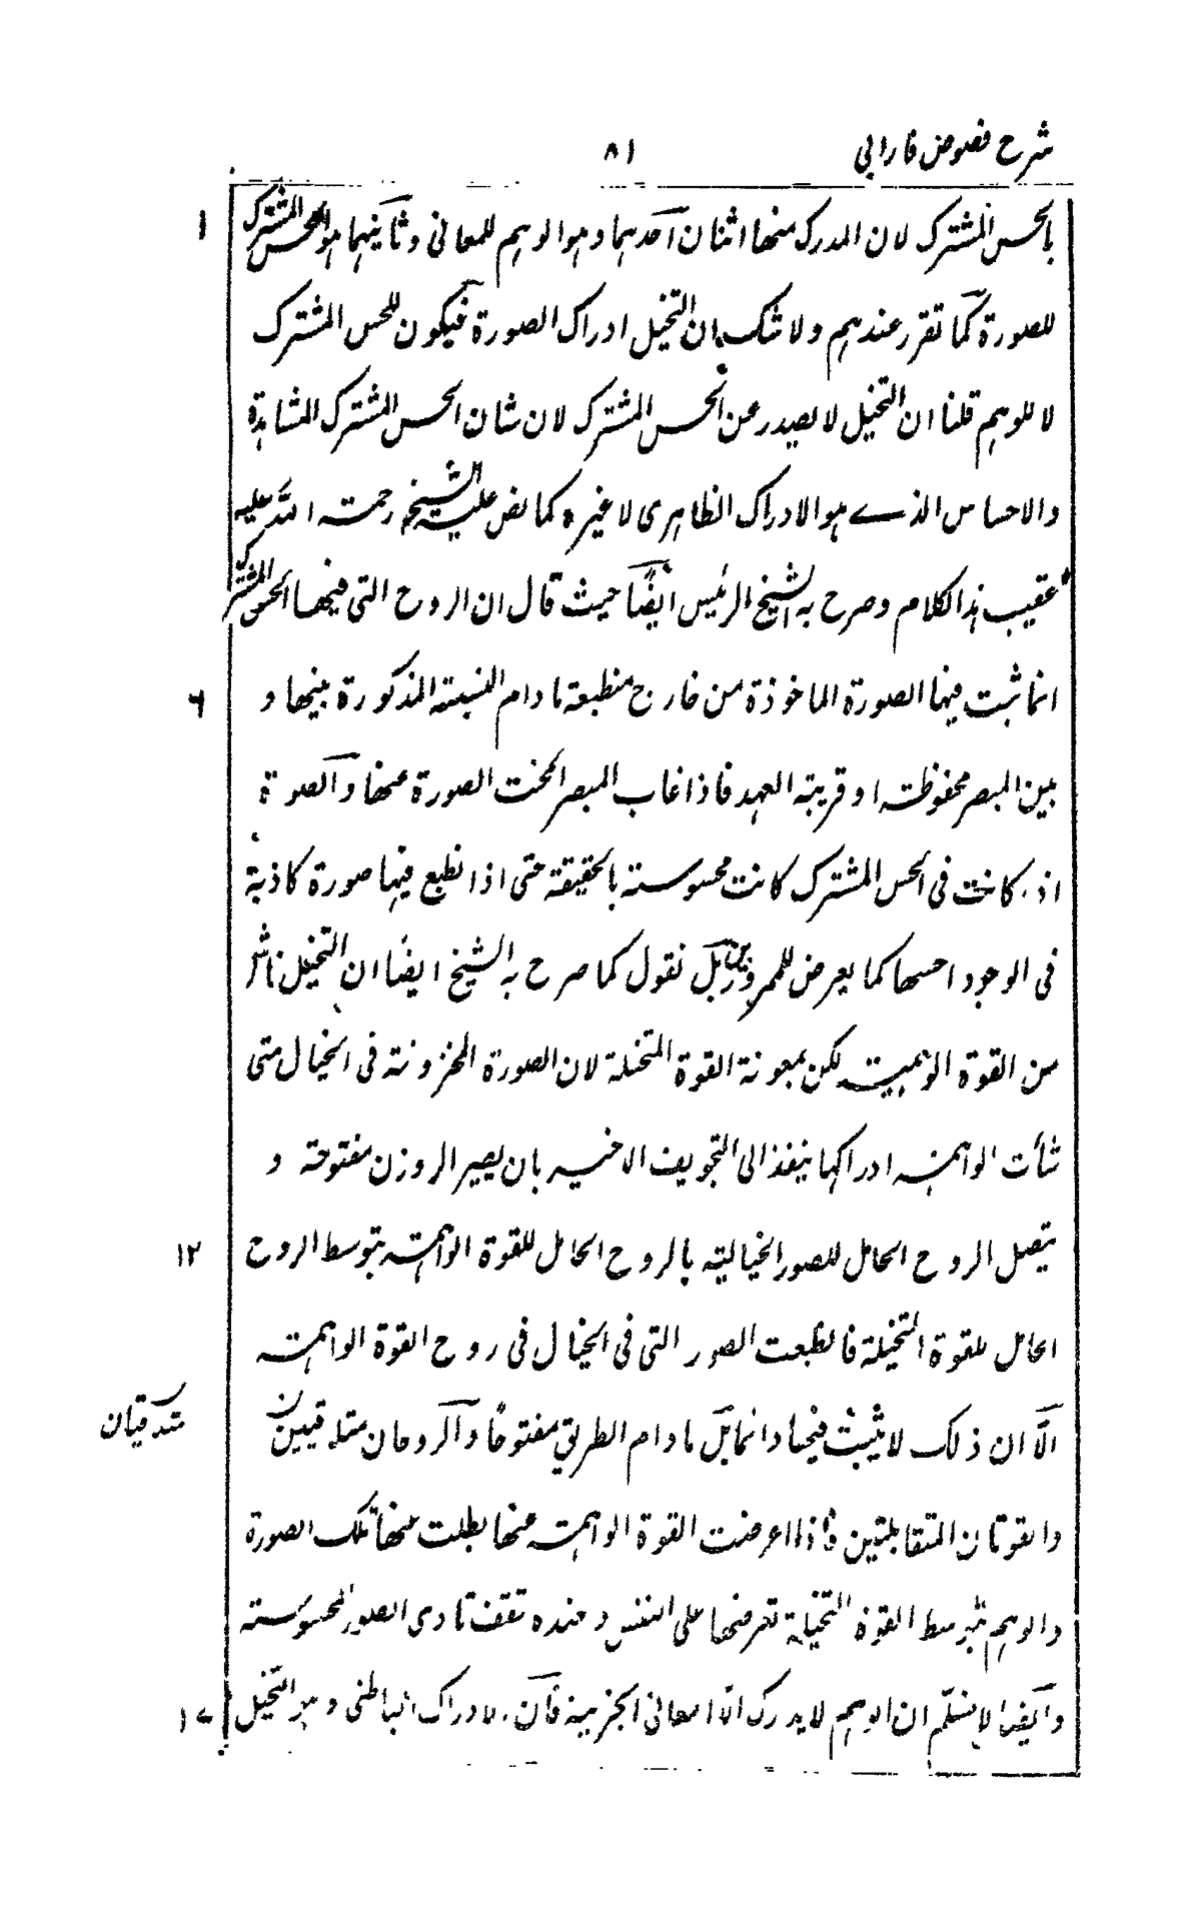 شرح فصوص فارابي
٨١
بالحس المشترك لان المدرك منها اثنان احدهما وهو الوهم للمعانى وثانيهما هو الحس المشترك
١
للصورة كما تقرر عندهم ولا شك ان التخيل ادراك الصورة فيكون للحس المشترك
لا للوهم قلنا ان التخيل لا يصدر عن الحس المشترك لان شان الحس المشترك المشاهدة
والاحساس الذے هو الادراك الظاهرى لا غيره كما نص عليه الشيخ رحمة الله عليه
عقيب هذا الكلام وصرح به الشيخ الرئيس ايضًا حيث قال ان الروح التى فيها الحس المشترك
انما ثبت فيها الصورة الماخوذة من خارج منطبعة ما دام النسبة المذكورة بينها و
٦
بين المبصر محفوظة او قريبة العهد فاذا غاب المبصر انمحت الصورة عنها والصورة
اذا كانت فى الحس المشترك كانت محسوسة بالحقيقة حتى اذا نطبع فيها صورة كاذبة
فى الوجود احسها كما يعرض للممرورين بل نقول كما صرح به الشيخ ايضًا ان التخيل ناش
من القوة الوهمية لكن بمعونة القوة المتخيلة لان الصورة المخزونة فى الخيال متى
شأت الواهمة ادراكها ينفذ الى التجويف الاخير بان يصير الروزن مفتوحة و
يتصل الروح الحامل للصور الخيالية بالروح الحامل للقوة الواهمة بتوسط الروح
١٢
الحامل للقوة المتخيلة فانطبعت الصور التى فى الخيال فى روح القوة الواهمة
الّا ان ذلك لا يثبت فيها دائما بل ما دام الطريق مفتوحًا والروحان متلاقيين
متلاقيان
والقوتان المتقابلتين فاذا اعرضت القوة الواهمة عنها بطلت عنها تلك الصورة
والوهم بتوسط القوة المتخيلة تعرضها على النفس وعنده تقف تادى الصور المحسوسة
وايضا لا نسلم ان الوهم لا يدرك الّا المعانى الجزئية فان الادراك الباطنى وهو التخيل
١٧